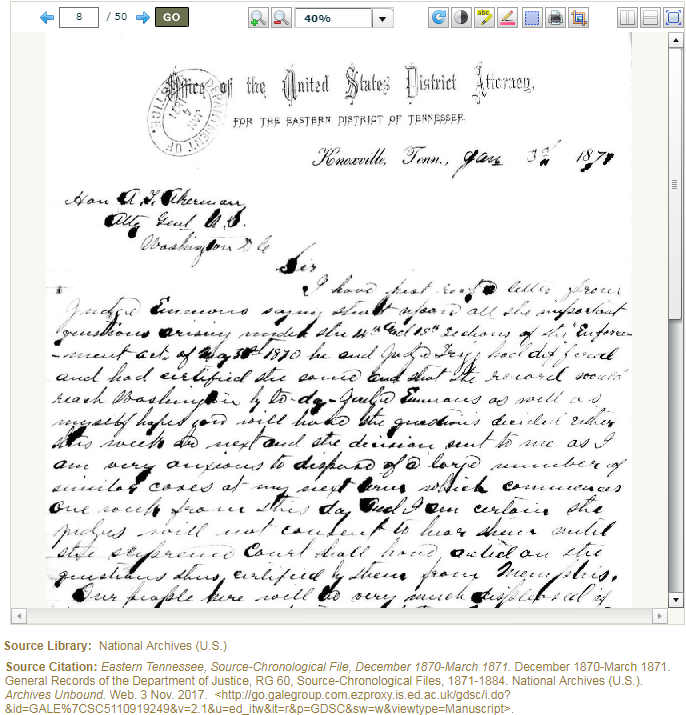 8 / 50 GO 40%
Office of the United States District Attorney,
FOR THE EASTERN DISTRICT OF TENNESSEE.
DEPARTMENT OF JUSTICE.
Knoxville, Tenn., Jan 3d 1871
Hon A. T. Akerman
Atty Genl U.S.
Washington D C
Sir
I have just recd a letter from
Judge Emmons saying that upon all the important
questions arising under the 14th and 15th Sections of the Enforce-
-ment act, of May 31st 1870 he and Judge Trigg had differed
and had certified the same and that the record would
reach Washington by to-day - Judge Emmons as well as
myself hopes you will have the questions decided either
this week or next and the decision sent to me as I
am very anxious to dispose of a large number of
similar cases at my next term which commences
one week from this day and I am certain the
judges will not consent to hear them until
the supreme Court shall have acted on the
questions thus, certified by them from Memphis.
Our people here will be very much displeased if
Source Library: National Archives (U.S.)
Source Citation: Eastern Tennessee, Source-Chronological File, December 1870-March 1871. December 1870-March 1871.
General Records of the Department of Justice, RG 60, Source-Chronological Files, 1871-1884. National Archives (U.S.).
Archives Unbound. Web. 3 Nov. 2017. <http://go.galegroup.com.ezproxy.is.ed.ac.uk/gdsc/i.do?
&id=GALE%7CSC5110919249&v=2.1&u=ed_itw&it=r&p=GDSC&sw=w&viewtype=Manuscript>.